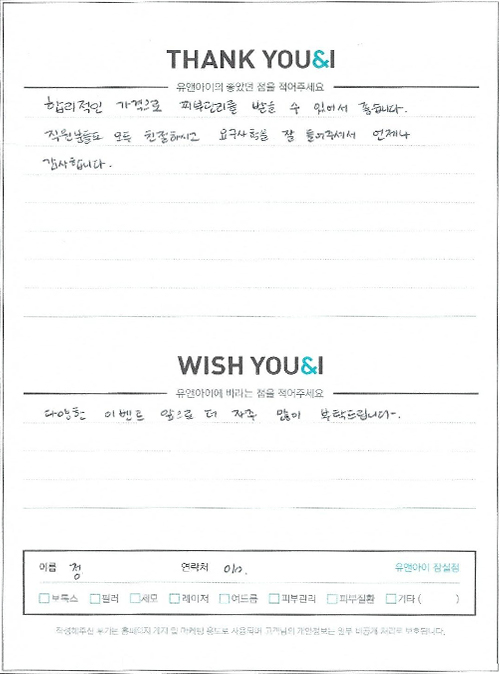 THANK YOU&I
유앤아이의 좋았던 점을 적어주세요
합리적인 가격으로 피부관리를 받을 수 있어서 좋습니다.
직원분들도 모두 친절하시고 요구사항을 잘 들어주셔서 언제나
감사합니다.
WISH YOU&I
유앤아이에 바라는 점을 적어주세요
다양한 이벤트 앞으로 더 자주 많이 부탁드립니다.
이름 정 연락처 010. 유앤아이 잠실점
보톡스 필러 제모 레이저 여드름 피부관리 피부질환 기타 ( )
작성해주신 후기는 홈페이지 게재 및 마케팅 용도로 사용되며 고객님의 개인정보는 일부 비공개 처리로 보호됩니다.